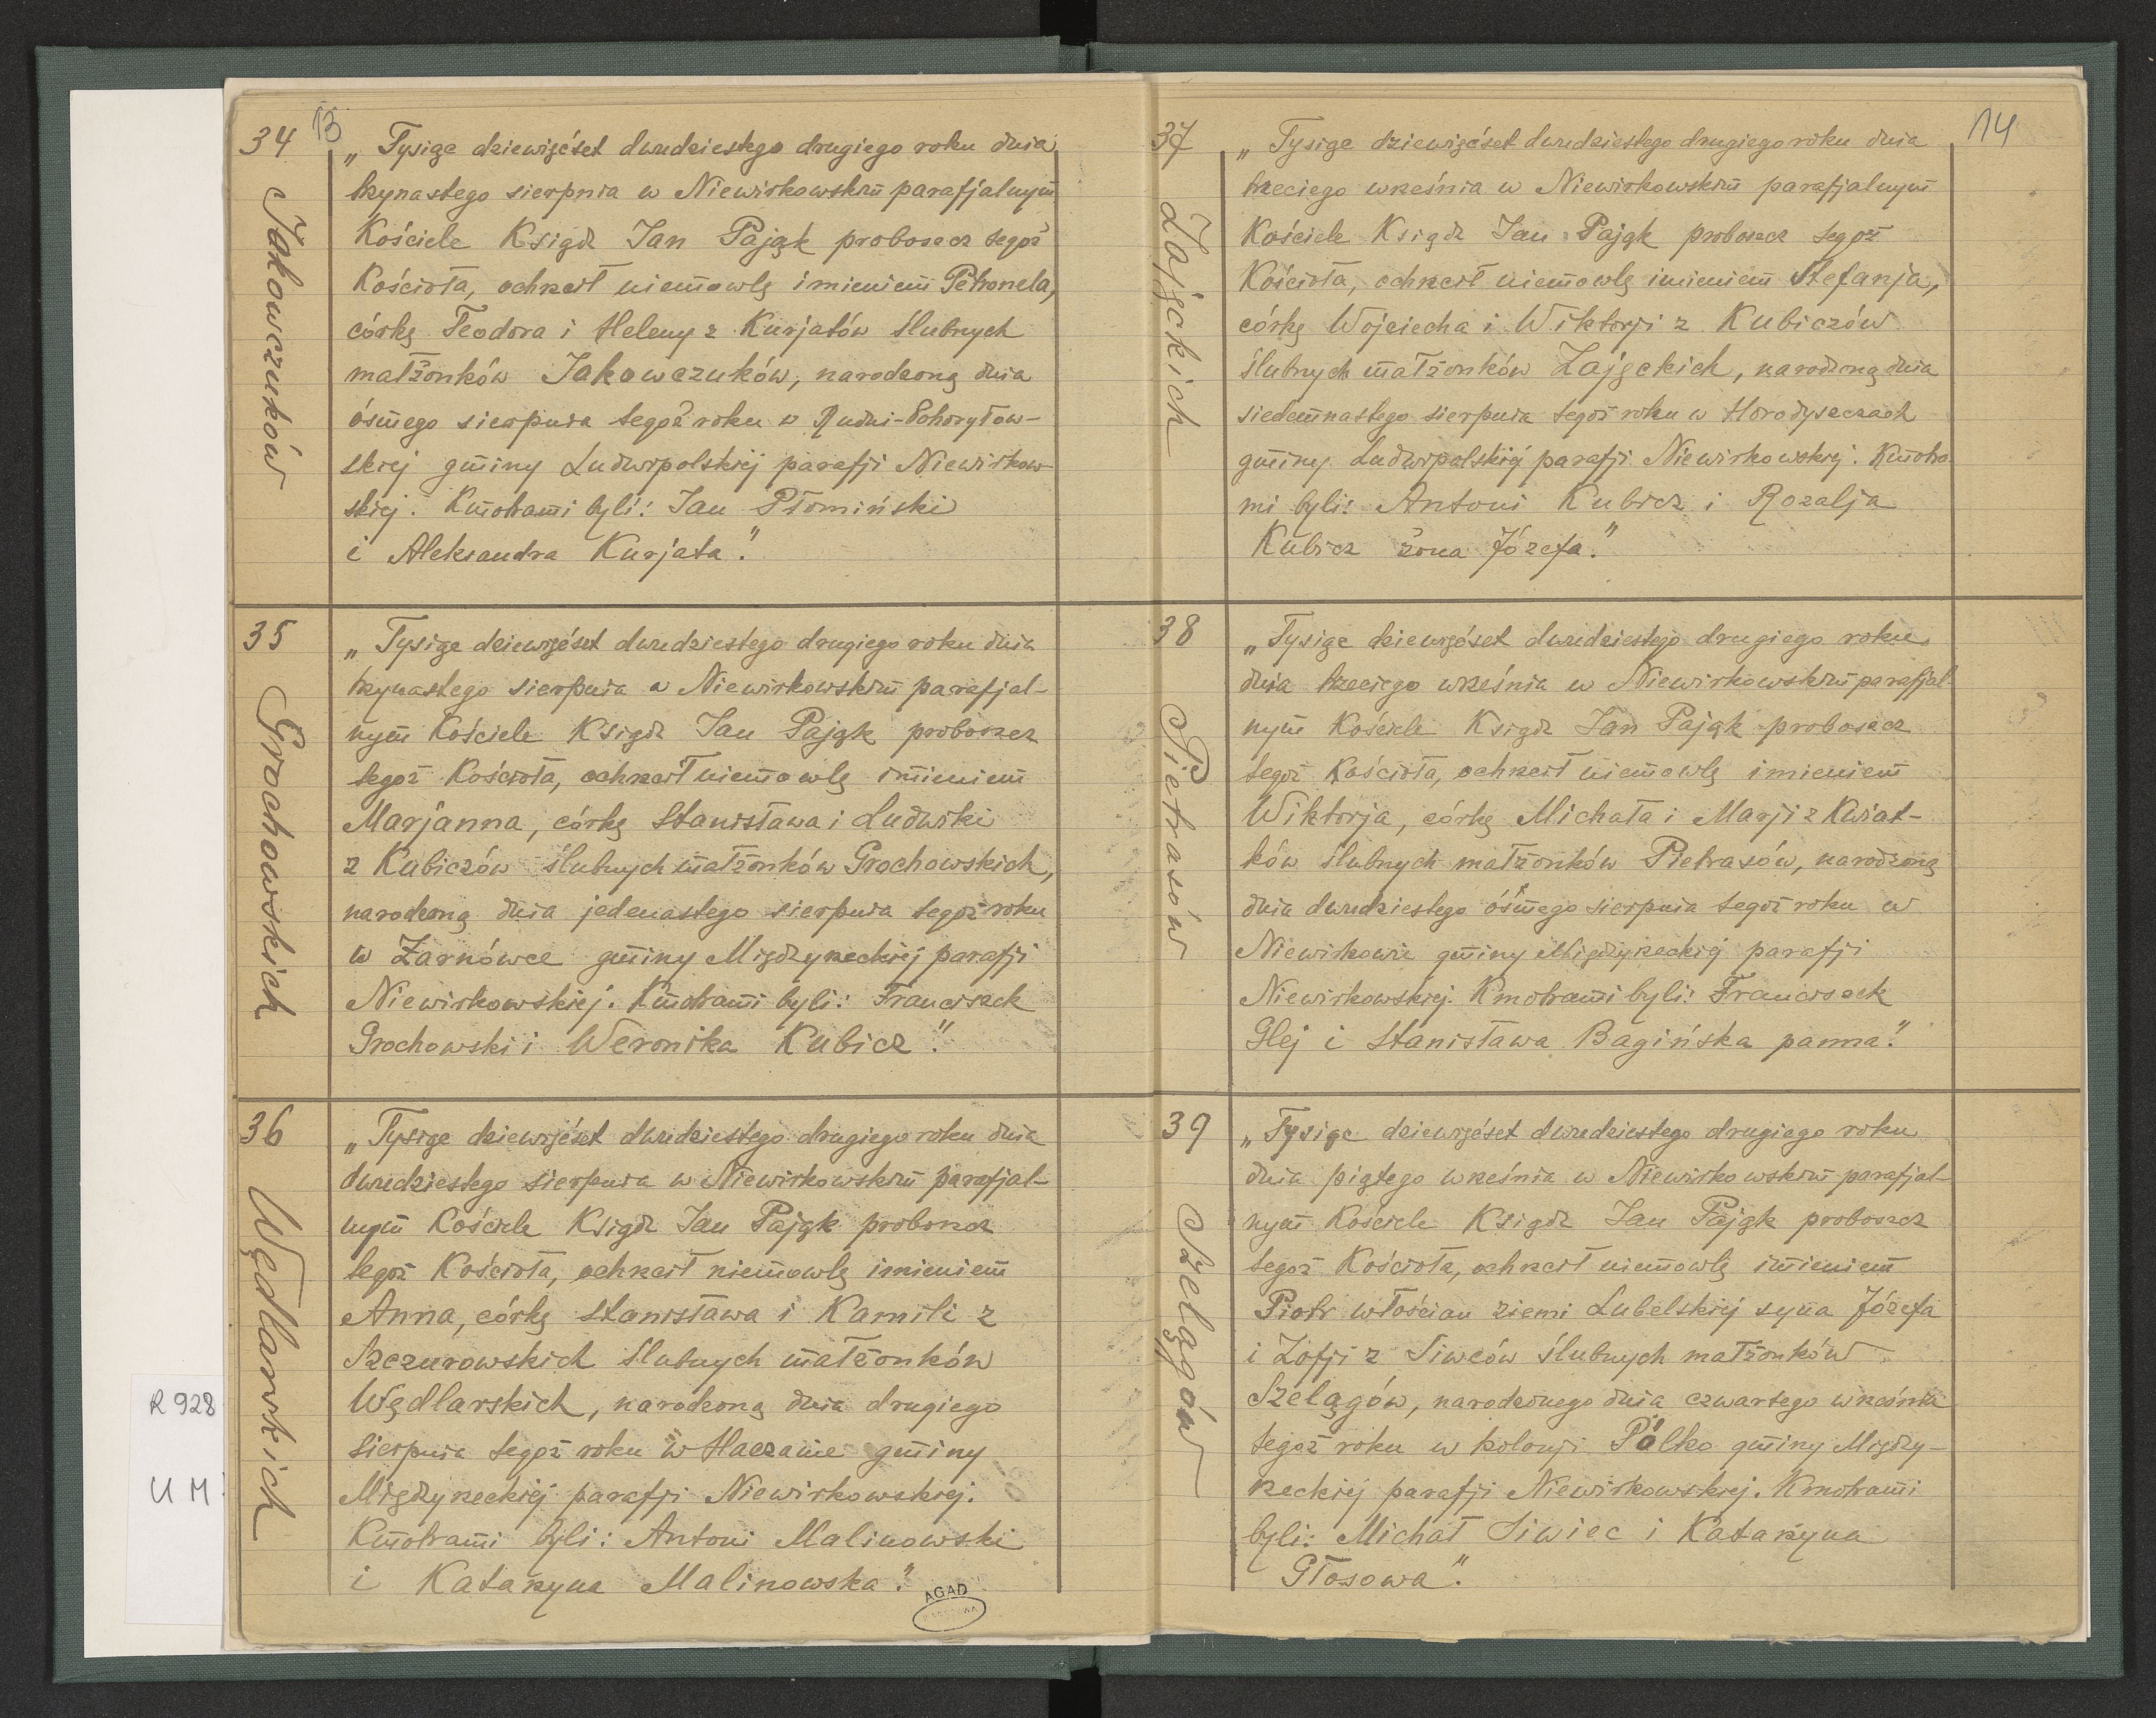 13
34
Jakowczuków
„Tysiąc dziewięćset dwudziestego drugiego roku dnia
trzynastego sierpnia w Niewirkowskim parafjalnym
Kościele Ksiądz Jan Pająk proboszcz tegoż
Kościoła, ochrzcił niemowlę imieniem Petronela,
córkę Teodora i Heleny z Kurjatów ślubnych
małżonków Jakowczuków, narodzoną dnia
ósmego sierpnia tegoż roku w Rudni-Pohoryłow-
skiej gminy Ludwipolskiej parafji Niewirkow-
skiej. Kmotrami byli: Jan Płomiński
i Aleksandra Kurjata."
35
Grochowskich
„Tysiąc dziewięćset dwudziestego drugiego roku dnia
trzynastego sierpnia w Niewirkowskim parafjal-
nym Kościele Ksiądz Jan Pająk proboszcz
tegoż Kościoła, ochrzcił niemowlę imieniem
Marjanna, córkę Stanisława i Ludwiki
z Kubiczów ślubnych małżonków Grochowskich,
narodzoną dnia jedenastego sierpnia tegoż roku
w Żarnówce gminy Międzyrzeckiej parafji
Niewirkowskiej. Kmotrami byli: Franciszek
Grochowski i Weronika Kubicz."
36
Wędlarskich
„Tysiąc dziewięćset dwudziestego drugiego roku dnia
dwudziestego sierpnia w Niewirkowskim parafjal-
nym Kościele Ksiądz Jan Pająk proboszcz
tegoż Kościoła, ochrzcił niemowlę imieniem
Anna, córkę Stanisława i Kamili z
Szczurowskich ślubnych małżonków
Wędlarskich, narodzoną dnia drugiego
sierpnia tegoż roku w Haczanie gminy
Międzyrzeckiej parafji Niewirkowskiej.
Kmotrami byli: Antoni Malinowski
i Katarzyna Malinowska."
AGAD
R 928
U M
14
37
Zajęckich
„Tysiąc dziewięćset dwudziestego drugiego roku dnia
trzeciego września w Niewirkowskim parafjalnym
Kościele Ksiądz Jan Pająk proboszcz tegoż
Kościoła, ochrzcił niemowlę imieniem Stefanja,
córkę Wojciecha i Wiktorji z Kubiczów
ślubnych małżonków Zajęckich, narodzoną dnia
siedemnastego sierpnia tegoż roku w Horodyszczach
gminy Ludwipolskiej parafji Niewirkowskiej. Kmotra-
mi byli: Antoni Kubicz i Rozalja
Kubicz żona Józefa."
38
Pietrasów
„Tysiąc dziewięćset dwudziestego drugiego roku
dnia trzeciego września w Niewirkowskim parafjal-
nym Kościele Ksiądz Jan Pająk proboszcz
tegoż Kościoła, ochrzcił niemowlę imieniem
Wiktorja, córkę Michała i Marji z Kwiat-
ków ślubnych małżonków Pietrasów, narodzoną
dnia dwudziestego ósmego sierpnia tegoż roku w
Niewirkowie gminy Międzyrzeckiej parafji
Niewirkowskiej. Kmotrami byli: Franciszek
Glej i Stanisława Bagińska panna."
39
Szelągów
„Tysiąc dziewięćset dwudziestego drugiego roku
dnia piątego września w Niewirkowskim parafjal-
nym Kościele Ksiądz Jan Pająk proboszcz
tegoż Kościoła, ochrzcił niemowlę imieniem
Piotr włościan ziemi Lubelskiej syna Józefa
i Zofji z Siwców ślubnych małżonków
Szelągów, narodzonego dnia czwartego września
tegoż roku w kolonji Pólko gminy Między-
rzeckiej parafji Niewirkowskiej. Kmotrami
byli: Michał Siwiec i Katarzyna
Głosowa."